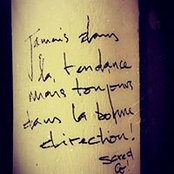 Jamais dans
la tendance
mais toujours
dans la bonne
direction!
Scred
Co!